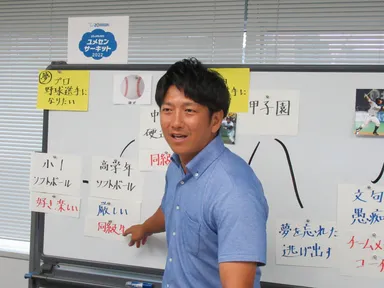 ユメセン
サーキット
2022
夢
プロ
野球選手に
なりたい
甲子園
小1
ソフトボール
好き 楽しい
高学年
ソフトボール
厳しい
同級生
同級
夢を忘れた
逃げ出す
文句
愚痴
チームメ
コー